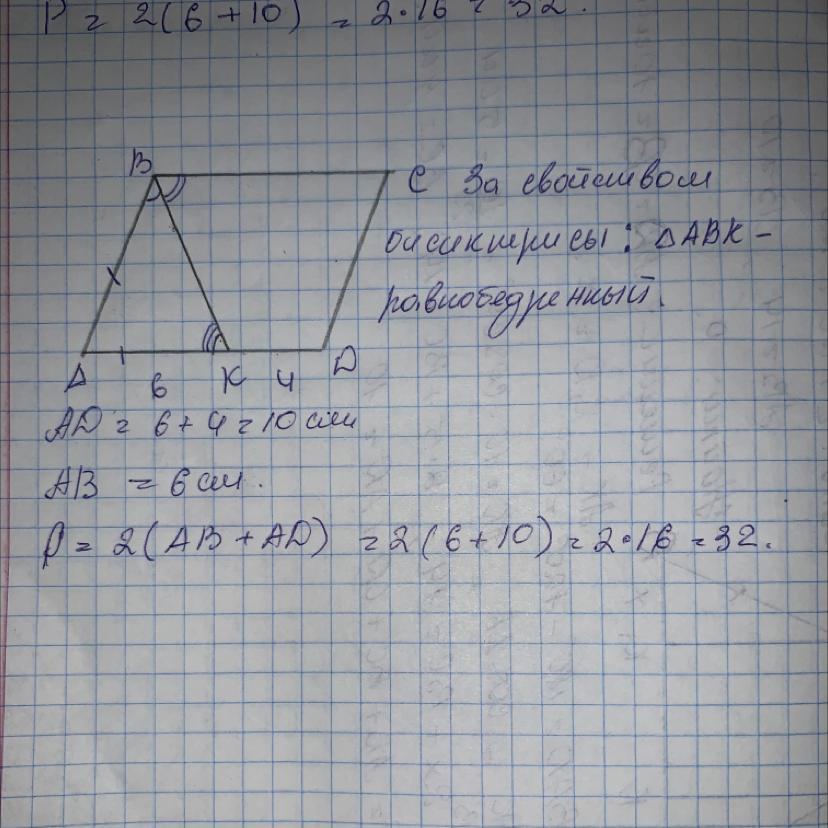 P = 2(6+10) = 2·16 = 32.
B
C За свойством
бисиктрисы: ΔABK –
равнобедренный.
A 6 K 4 D
AD = 6+4=10 см
AB = 6 см.
P = 2(AB+AD) = 2(6+10) = 2·16 = 32.